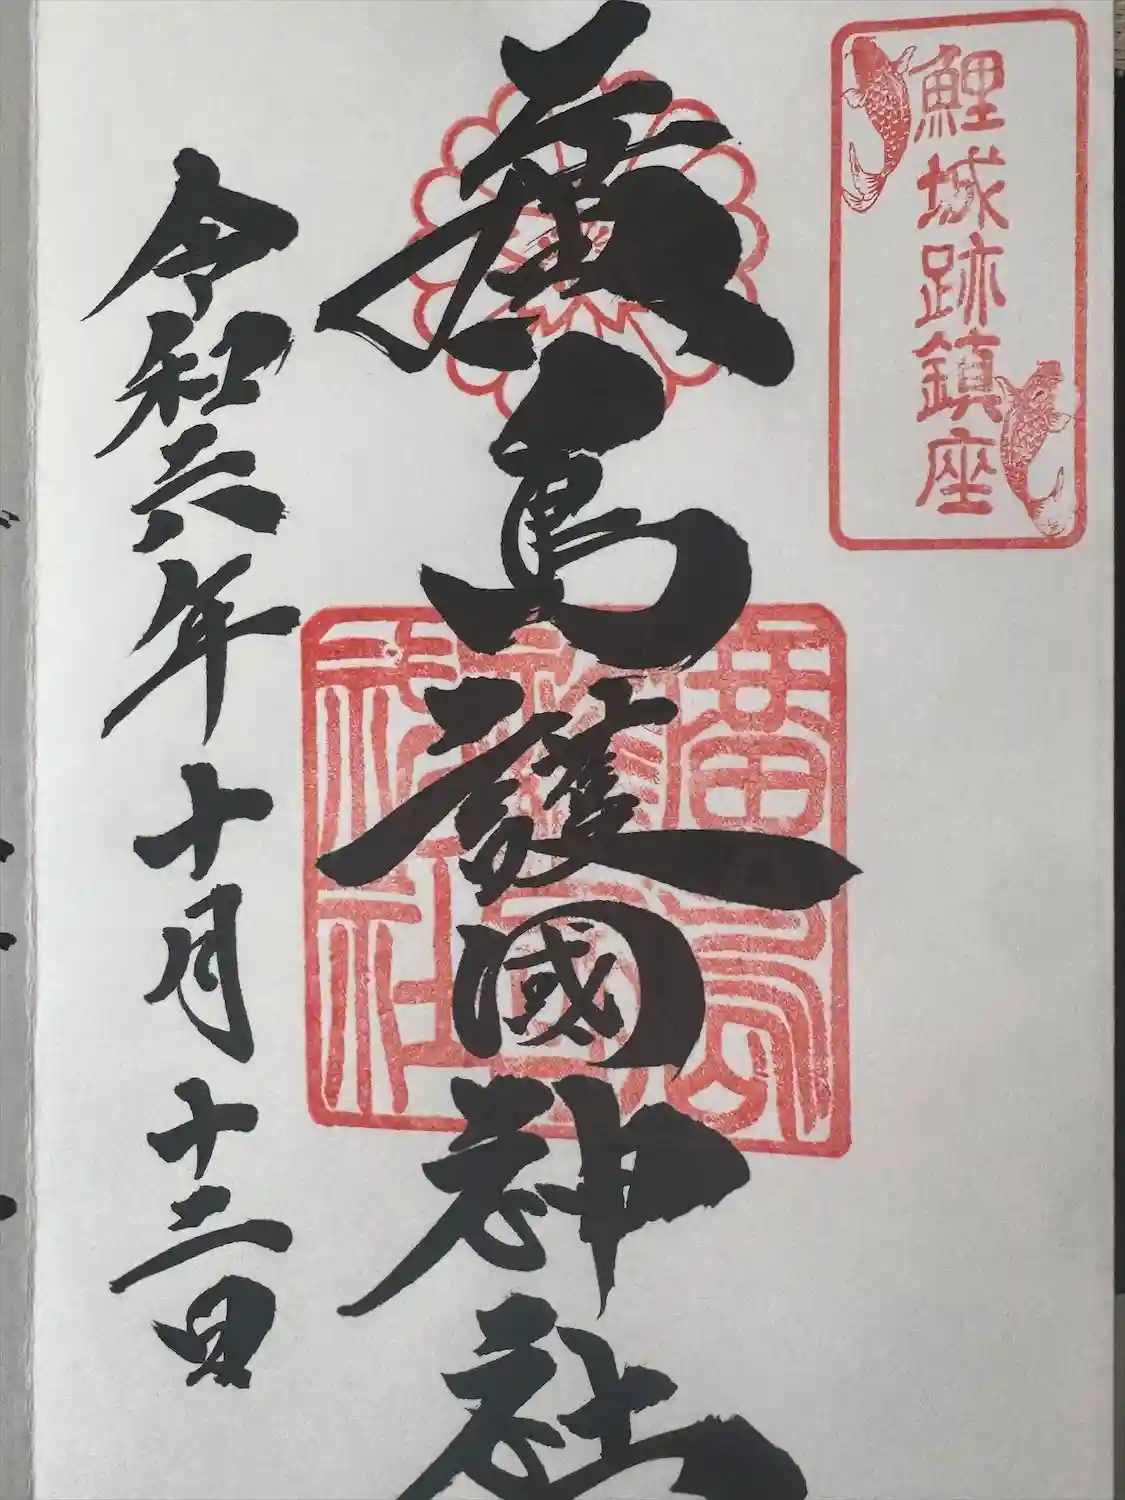 鯉城跡鎮座
廣島護國神社
令和六年十月十二日
廣島護國神社